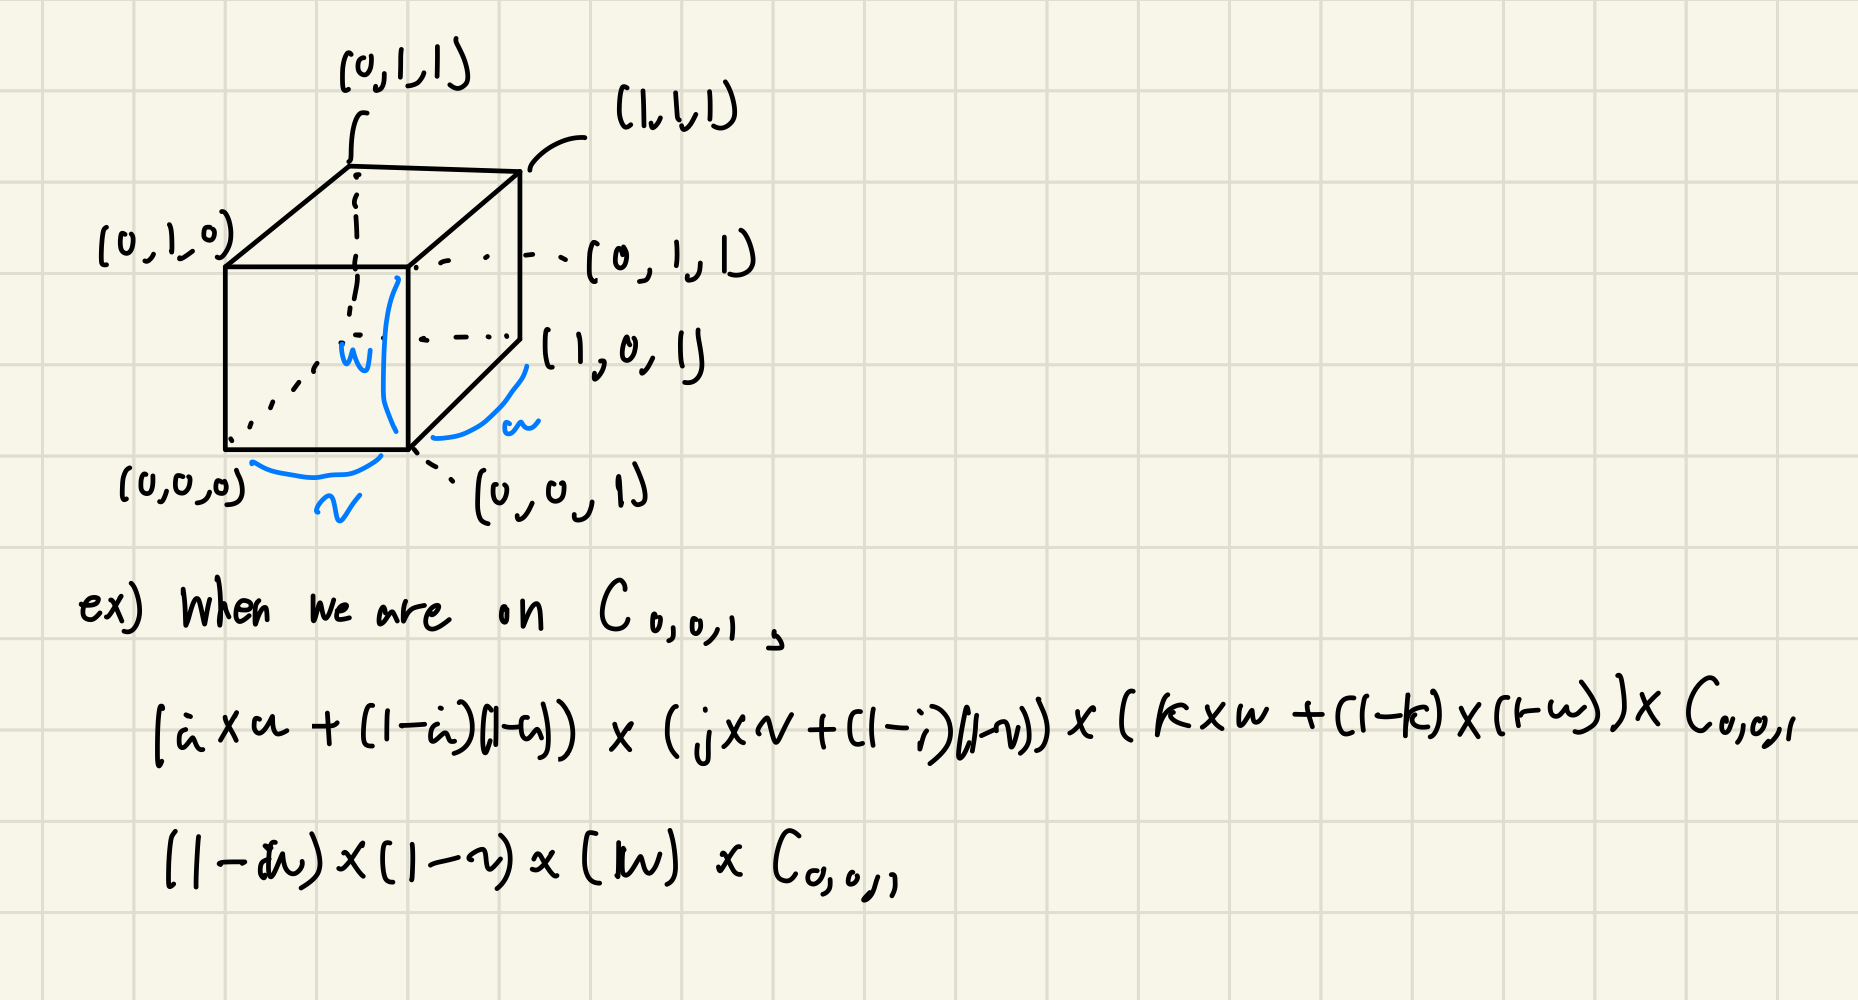 (0,1,1)
(1,1,1)
(0,1,0)
(0,1,1)
(1,0,1)
w
u
(0,0,0)
v
(0,0,1)
ex) When we are on C0,0,1,
(i×u + (1-i)(1-u)) × (j×v + (1-j)(1-v)) × (k×w + (1-k)×(1-w)) × C0,0,1
(1-u)×(1-v)×(w) × C0,0,1